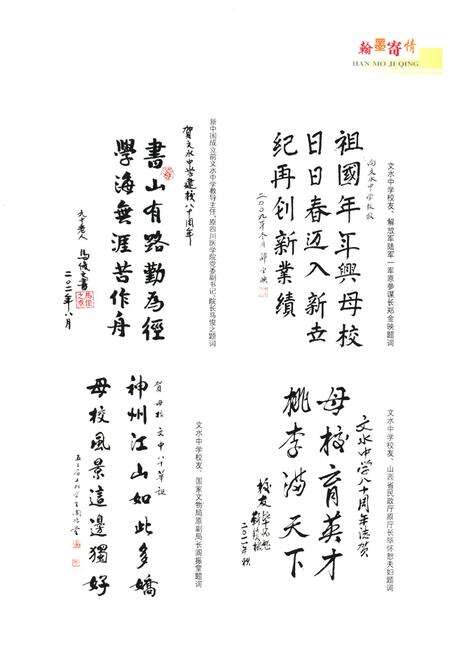 翰墨寄情
HAN MO JI QING
文水中学校友、解放军陆军一军原参谋长郑金映题词
祖國年年興母校
日日春迈入新世
纪再创新業績
向文水中学校友
新中国成立前文水中学教导主任、原四川医学院党委副书记、院长马俊之题词
賀文水中学建校八十周年
書山有路勤為徑
學海無涯苦作舟
九十老人 馬俊之書
二〇一一年八月
文水中学校友、山西省民政厅原厅长毕怀恕夫妇题词
文水中学八十周年志贺
母校育英才
桃李满天下
校友
二〇一一年秋
文水中学校友、国家文物局原副局长阎振堂题词
賀母校文中八十華誕
神州江山如此多嬌
母校風景這邊獨好